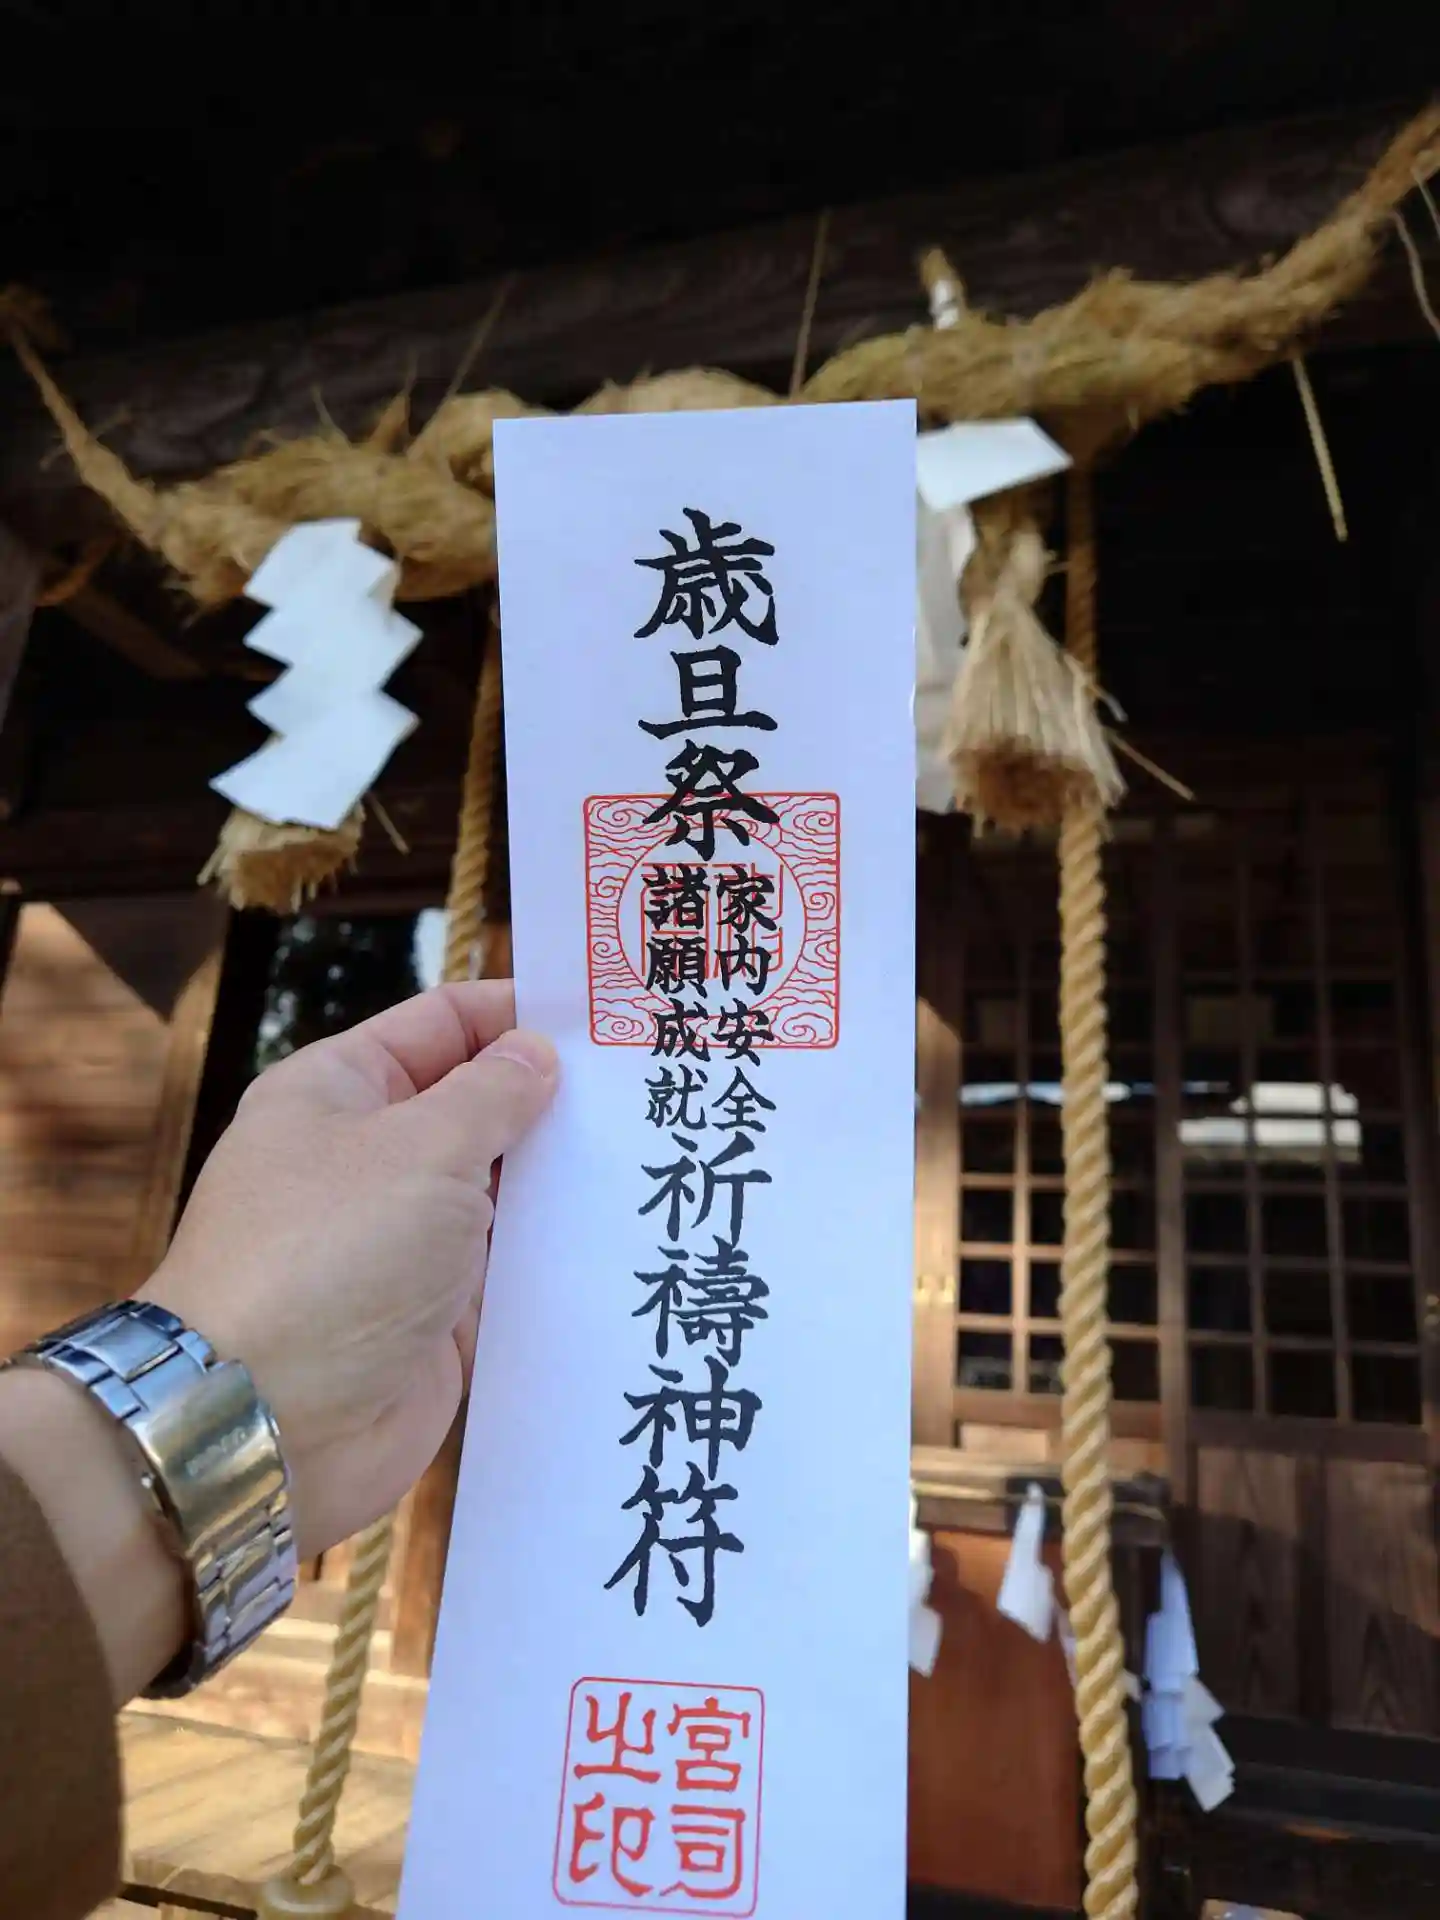 歳旦祭
家内安全
諸願成就
祈禱神符
宮司
之印